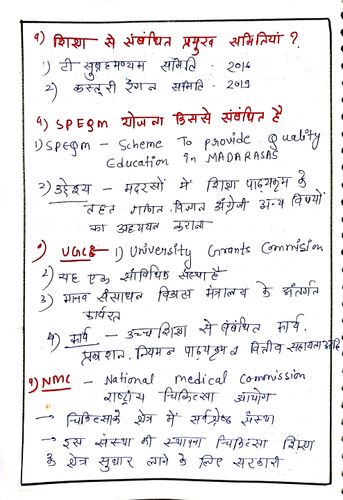 १) शिक्षा से संबंधित प्रमुख समितियां ?
1) टी सुब्रहमण्यम समिति - 2016
2) कस्तूरी रंगन समिति - 2019
१) SPEQM योजना किससे संबंधित है
1) SPEQM - Scheme To provide Quality
Education in MADARASAS
2) उद्देश्य - मदरसों में शिक्षा पाठ्यक्रम के
तहत गणित विज्ञान अंग्रेजी अन्य विषयों
का अध्ययन कराना
१) UGC 1) University Grants Commission
2) यह एक सांविधिक संस्था है
3) मानव संसाधन विकास मंत्रालय के अंतर्गत
कार्यरत
4) कार्य - उच्च शिक्षा से संबंधित कार्य,
नियमन पाठ्यक्रम वित्तीय सहायता आदि
१) NMC - National medical commission
राष्ट्रीय चिकित्सा आयोग
→ चिकित्सा के क्षेत्र में सर्वश्रेष्ठ संस्था
→ इस संस्था की स्थापना चिकित्सा शिक्षा
के क्षेत्र सुधार लाने के लिए सरकारी